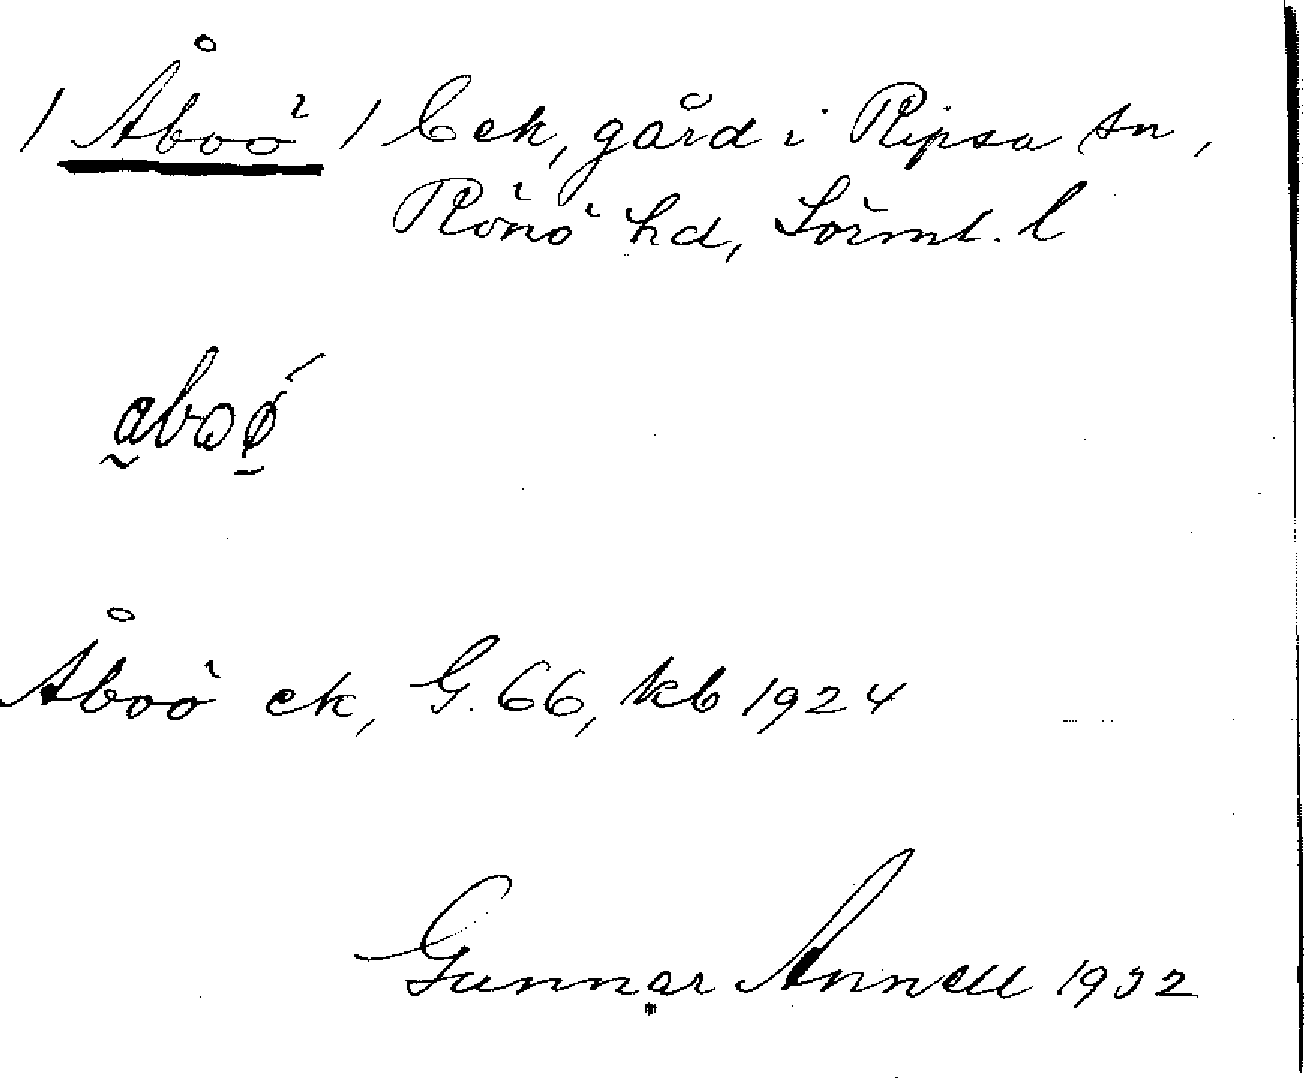 / Åboö / Cek, gård i Ripsa sn,
Rönö hd, Sörml. l
Åboö ek, G. 66, kb 1924
Gunnar Annell 1932